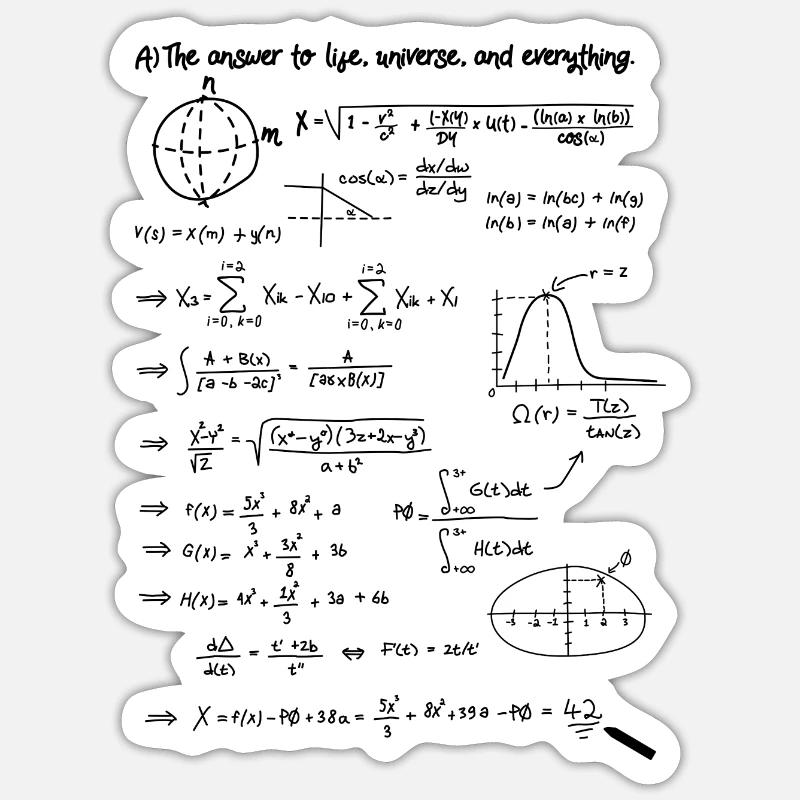 A) The answer to life, universe, and everything.
n
m
X = √(1 - v²/c² + (1-X(y))/Dy x u(t) - ((ln(a) x ln(b))/cos(α))
cos(α) = dx/dw / dz/dy
α
ln(a) = ln(bc) + ln(g)
ln(b) = ln(a) + ln(f)
V(s) = x(m) + y(n)
⇒ X₃ = Σ i=2 i=0, k=0 Xik - X10 + Σ i=2 i=0, k=0 Xik + X1
r = z
0
⇒ ∫ A + B(x) / [a -b -2c]³ = A / [a8 x B(x)]
Ω(r) = T(z) / tAN(z)
⇒ x²-y² / √2 = √((x⁺-y⁰)(3z+2x-y³) / a+b²)
⇒ f(x) = 5x³/3 + 8x² + a
PØ = ∫ 3+ +∞ G(t)dt / ∫ 3+ +∞ H(t)dt
⇒ G(x) = x³ + 3x²/8 + 3b
⇒ H(x) = 4x³ + 1x²/3 + 3a + 6b
Ø
-3 -2 -1 1 2 3
d∆/d(t) = t' +2b / t'' ⇔ F'(t) = 2t/t'
⇒ X = f(x) - PØ + 38a = 5x³/3 + 8x² + 39a - PØ = 42